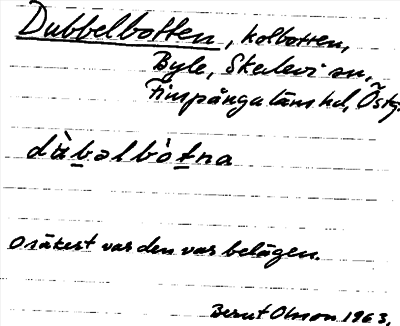 Dubbelbotten, kolbotten,
Byle, Skedevi sn,
Finspånga läns hd, Östg.
dàbəlbòtna
Osäkert var den var belägen.
Bernt Olsson 1963.